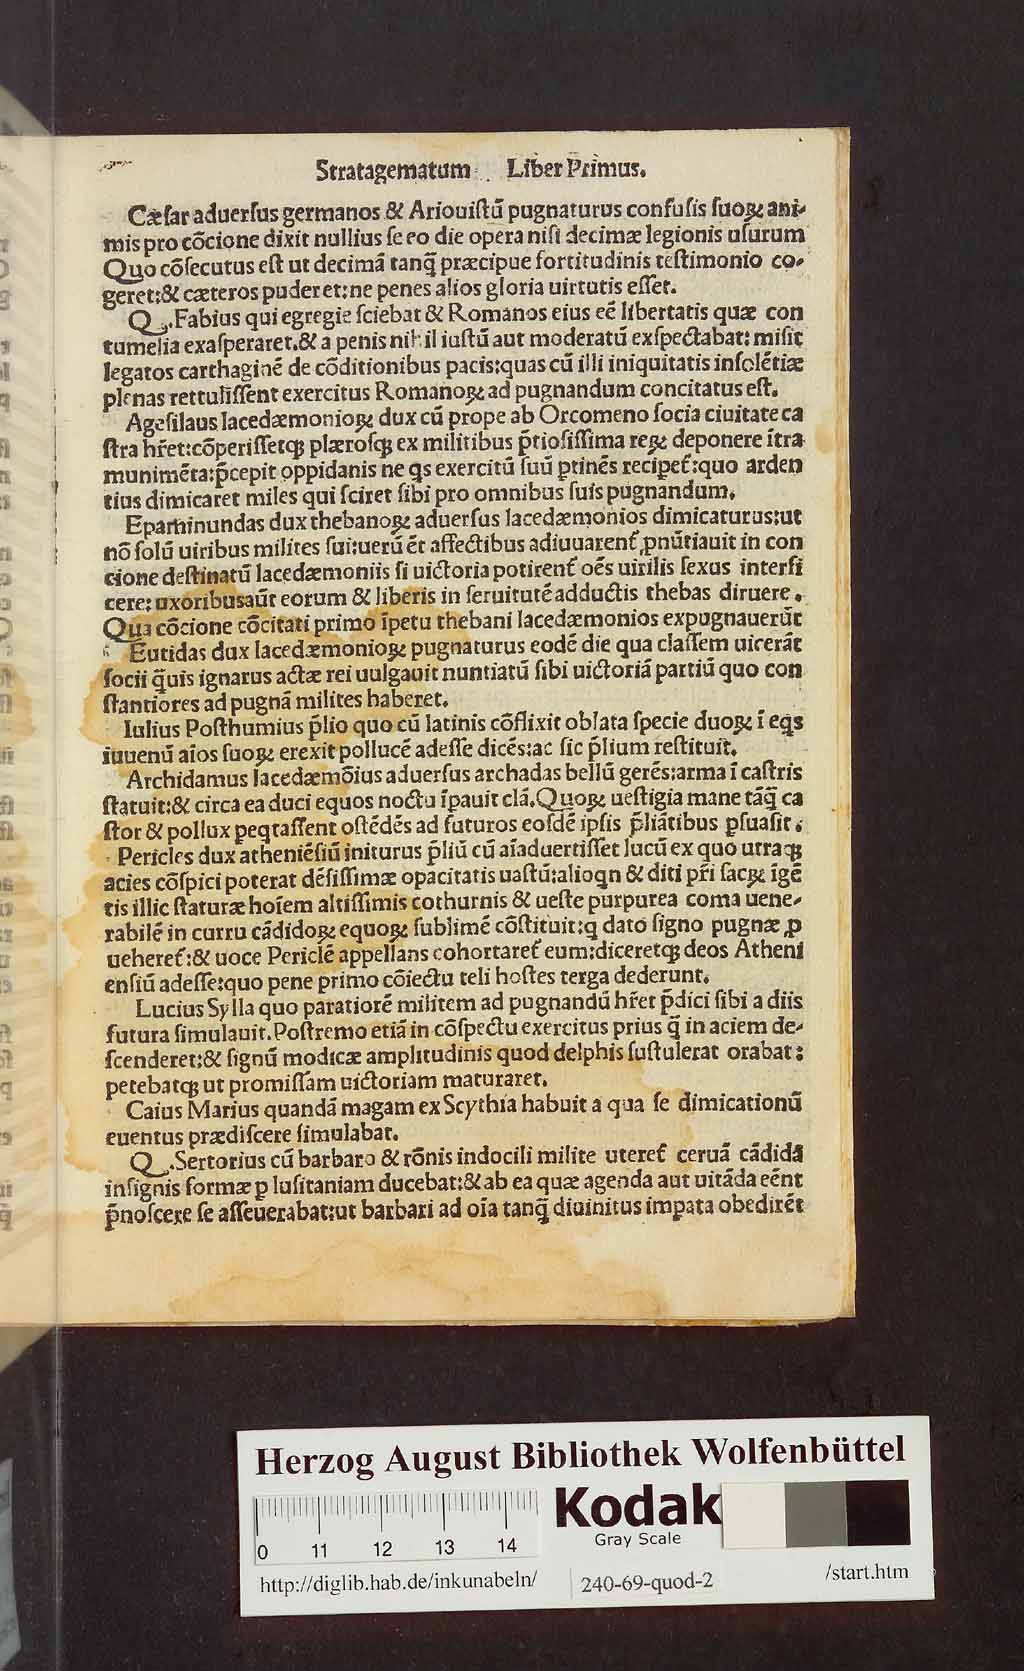 Stratagematum Liber Primus.
Cæſar aduerſus germanos & Ariouiſtū pugnaturus confuſis ſuoꝝ ani-
mis pro cōcione dixit nullius ſe eo die opera niſi decimæ legionis uſurum
Quo cōſecutus eſt ut decimā tanq̄ præcipue fortitudinis teſtimonio co-
geret:& cæteros puderet:ne penes alios gloria uirtutis eſſet.
Q. Fabius qui egregie ſciebat & Romanos eius eē libertatis quæ con
tumelia exaſperaret.& a penis nihil iuſtū aut moderatū exſpectabat: miſit
legatos carthaginē de cōditionibus pacis:quas cū illi iniquitatis inſolētiæ
plenas rettuliſſent exercitus Romanoꝝ ad pugnandum concitatus eſt.
Ageſilaus lacedæmonioꝝ dux cū prope ab Orcomeno ſocia ciuitate ca
ſtra hr̄et:cōperiſſetqꝫ plæroſqꝫ ex militibus p̄tioſiſſima reꝝ deponere ītra
munimēta:p̄cepit oppidanis ne qs exercitū ſuū ꝑtinēs recipet̄:quo arden
tius dimicaret miles qui ſciret ſibi pro omnibus ſuis pugnandum.
Epaminundas dux thebanoꝝ aduerſus lacedæmonios dimicaturus:ut
nō ſolū uiribus milites ſui:uerū ēt affectibus adiuuarent̄ ꝓnūtiauit in con
cione deſtinatū lacedæmoniis ſi uictoria potirent̄ oēs uirilis ſexus interfi
cere: uxoribusaūt eorum & liberis in ſeruitutē adductis thebas diruere.
Qua cōcione cōcitati primo īpetu thebani lacedæmonios expugnauerūt
Eutidas dux lacedæmonioꝝ pugnaturus eodē die qua claſſem uicerāt
ſocii q̄uis ignarus actæ rei uulgauit nuntiatū ſibi uictoriā partiū quo con
ſtantiores ad pugnā milites haberet.
Iulius Poſthumius p̄lio quo cū latinis cōflixit oblata ſpecie duoꝝ ī eqs
iuuenū aīos ſuoꝝ erexit pollucē adeſſe dicēs:ac ſic p̄lium reſtituit.
Archidamus lacedæmōius aduerſus archadas bellū gerēs:arma ī caſtris
ſtatuit:& circa ea duci equos noctu īpauit clā.Quoꝝ ueſtigia mane tāq̄ ca
ſtor & pollux peqtaſſent oſtēdēs ad futuros eoſdē ipſis p̄liātibus ꝑſuaſit.
Pericles dux atheniēſiū initurus p̄liū cū aīaduertiſſet lucū ex quo utraqꝫ
acies cōſpici poterat dēſiſſimæ opacitatis uaſtū:alioqn & diti pr̄i ſacꝝ īgē
tis illic ſtaturæ hoīem altiſſimis cothurnis & ueſte purpurea coma uene-
rabilē in curru cādidoꝝ equoꝝ ſublimē cōſtituit:q dato ſigno pugnæ ꝓ
ueheret̄:& uoce Periclē appellans cohortaret̄ eum:diceretqꝫ deos Atheni
enſiū adeſſe:quo pene primo cōiectu teli hoſtes terga dederunt.
Lucius Sylla quo paratiorē militem ad pugnandū hr̄et p̄dici ſibi a diis
futura ſimulauit.Poſtremo etiā in cōſpectu exercitus prius q̄ in aciem de-
ſcenderet:& ſignū modicæ amplitudinis quod delphis ſuſtulerat orabat:
petebatqꝫ ut promiſſam uictoriam maturaret.
Caius Marius quandā magam ex Scythia habuit a qua ſe dimicationū
euentus prædiſcere ſimulabat.
Q. Sertorius cū barbaro & rōnis indocili milite uteret̄ ceruā cādidā
inſignis formæ ꝑ luſitaniam ducebat:& ab ea quæ agenda aut uitāda eēnt
p̄noſcere ſe aſſeuerabat:ut barbari ad oīa tanq̄ diuinitus imꝑata obedirēt
Herzog August Bibliothek Wolfenbüttel
Kodak
Gray Scale
0 11 12 13 14
http://diglib.hab.de/inkunabeln/ 240-69-quod-2 /start.htm